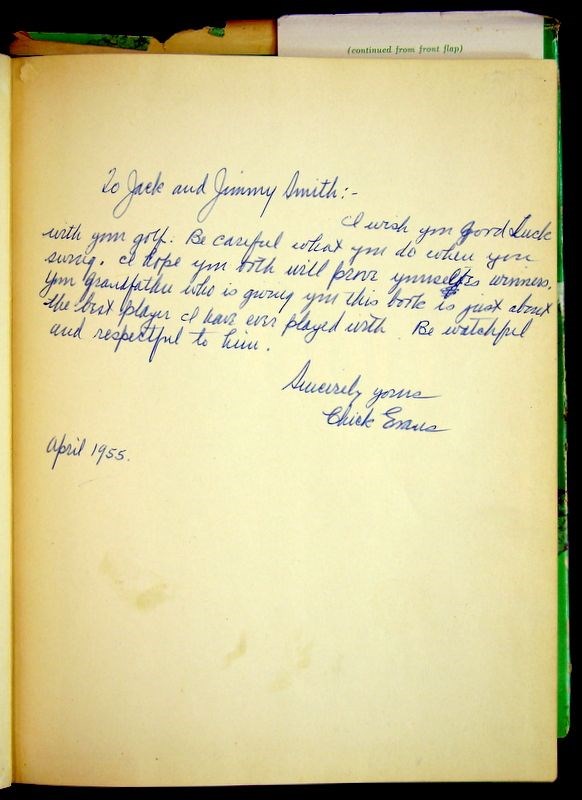 (continued from front flap)
To Jack and Jimmy Smith:-
I wish you good Luck
with your golf. Be careful what you do when you
swing. I hope you both will prove yourselfs winners.
Your Grandfather who is giving you this book is just about
the best player I have ever played with. Be watchful
and respectful to him.
Sincerely yours
Chick Evans
April 1955.